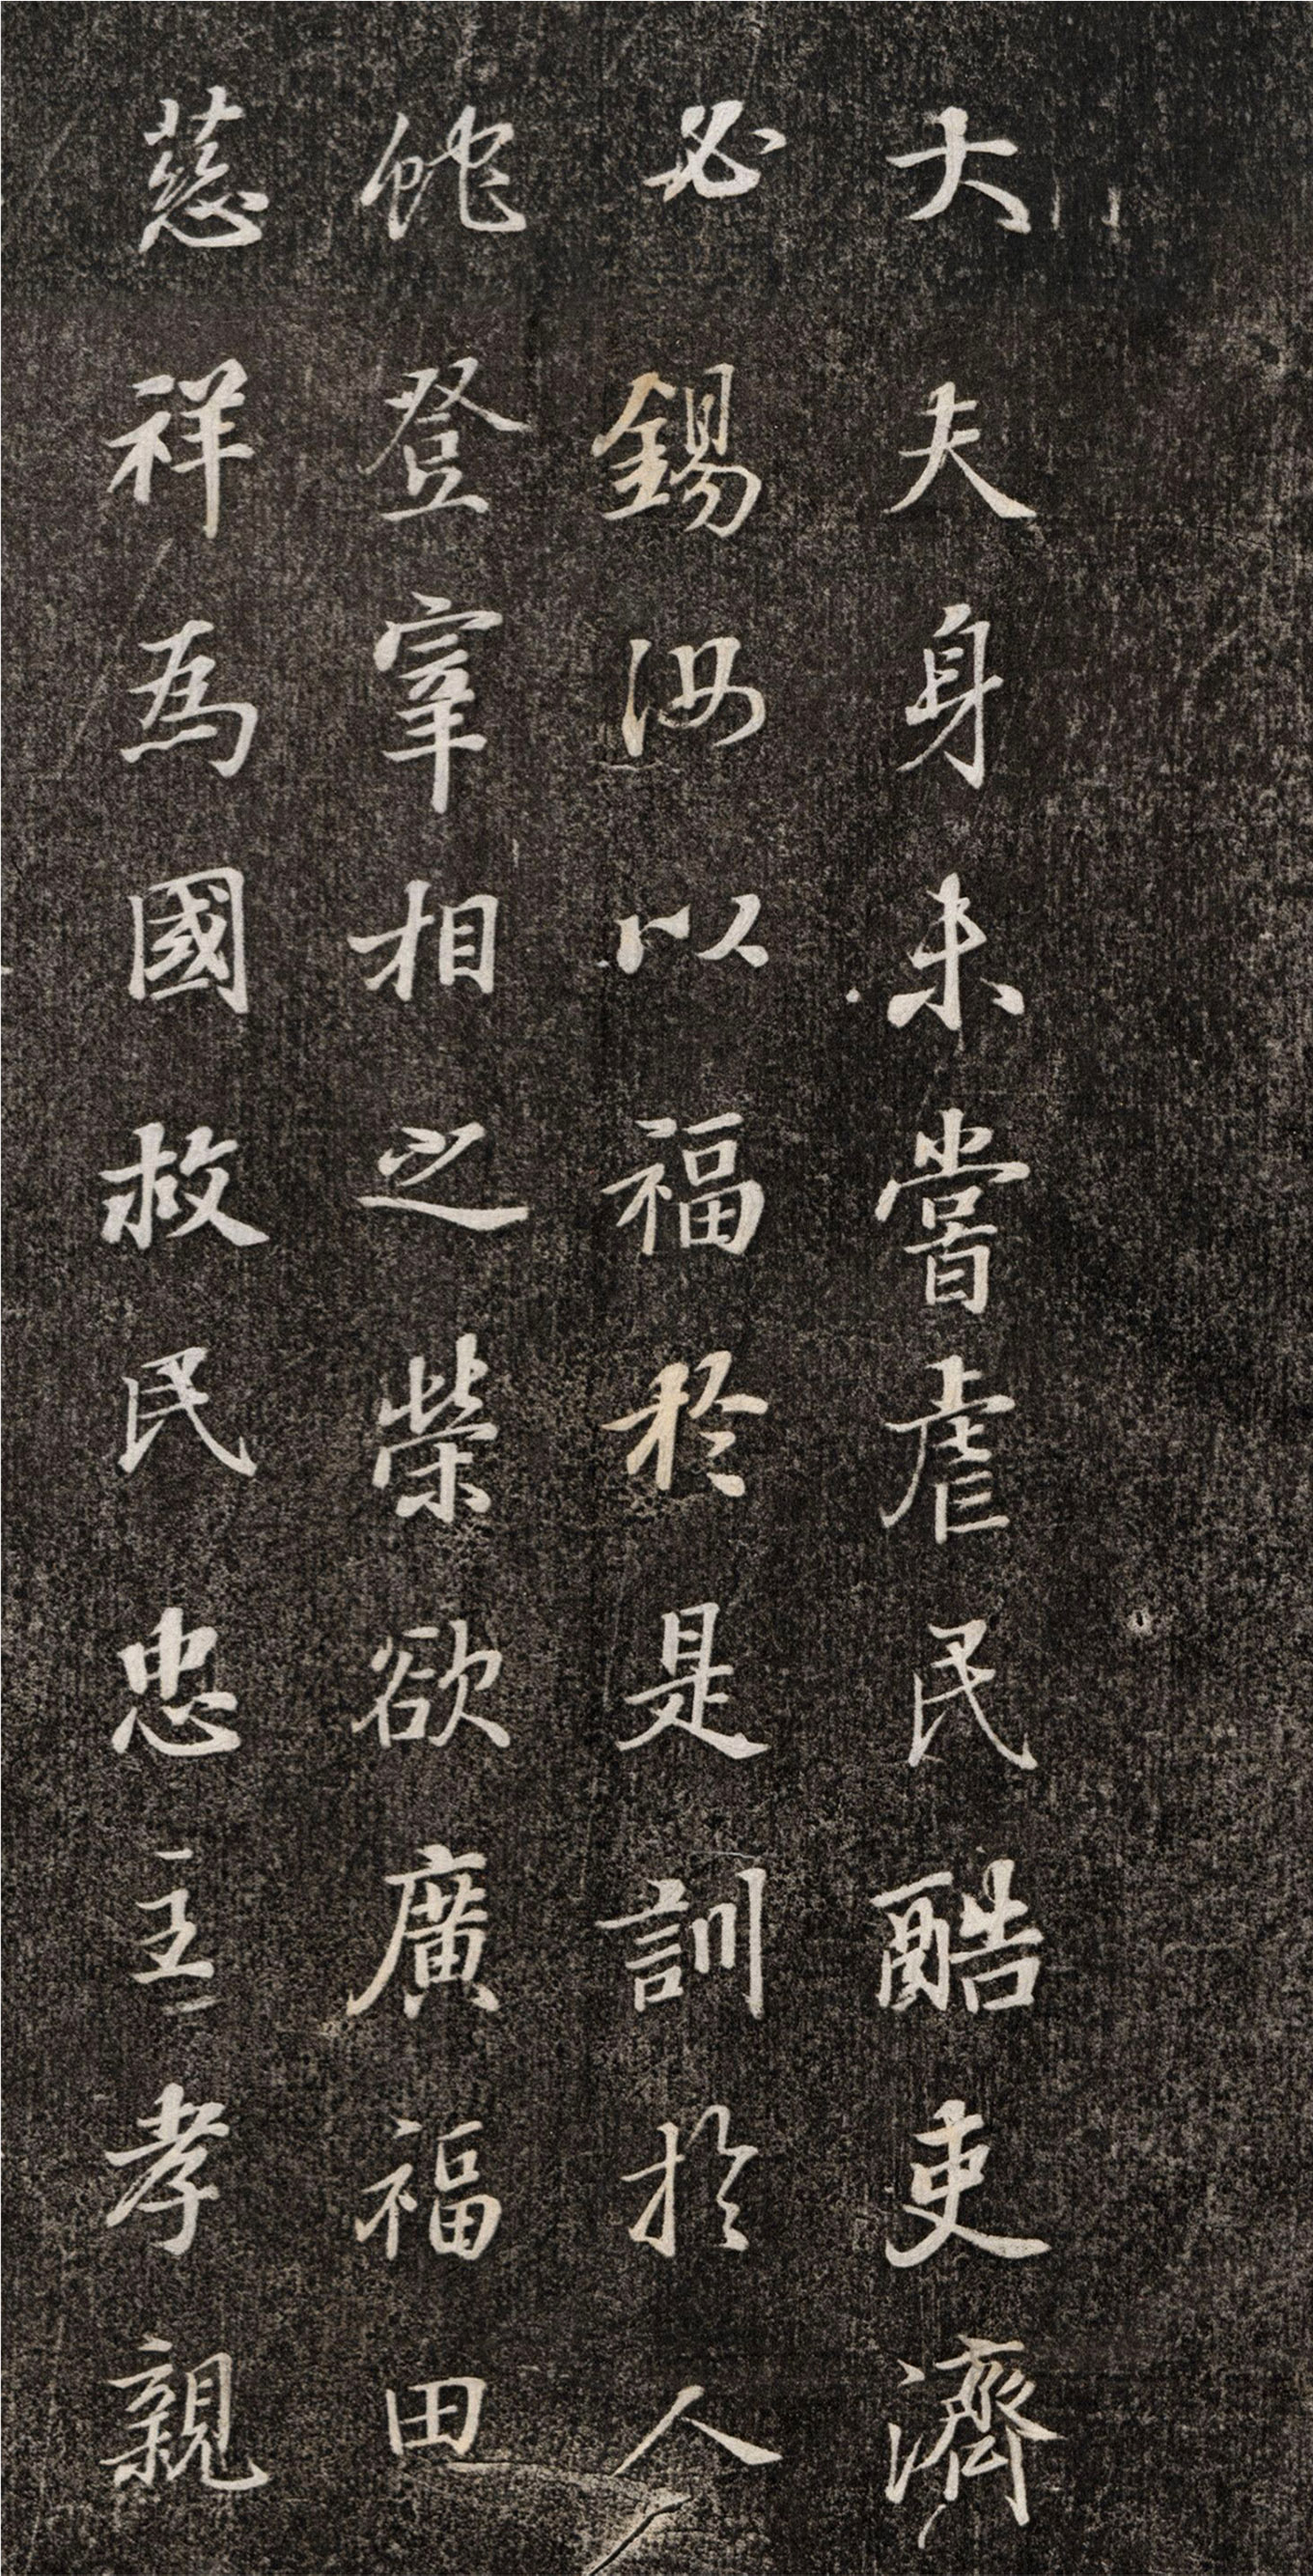 大夫身未嘗虐民酷吏濟
必錫汝以福於是訓於人
蛇登宰相之榮欲廣福田
慈祥為國救民忠主孝親